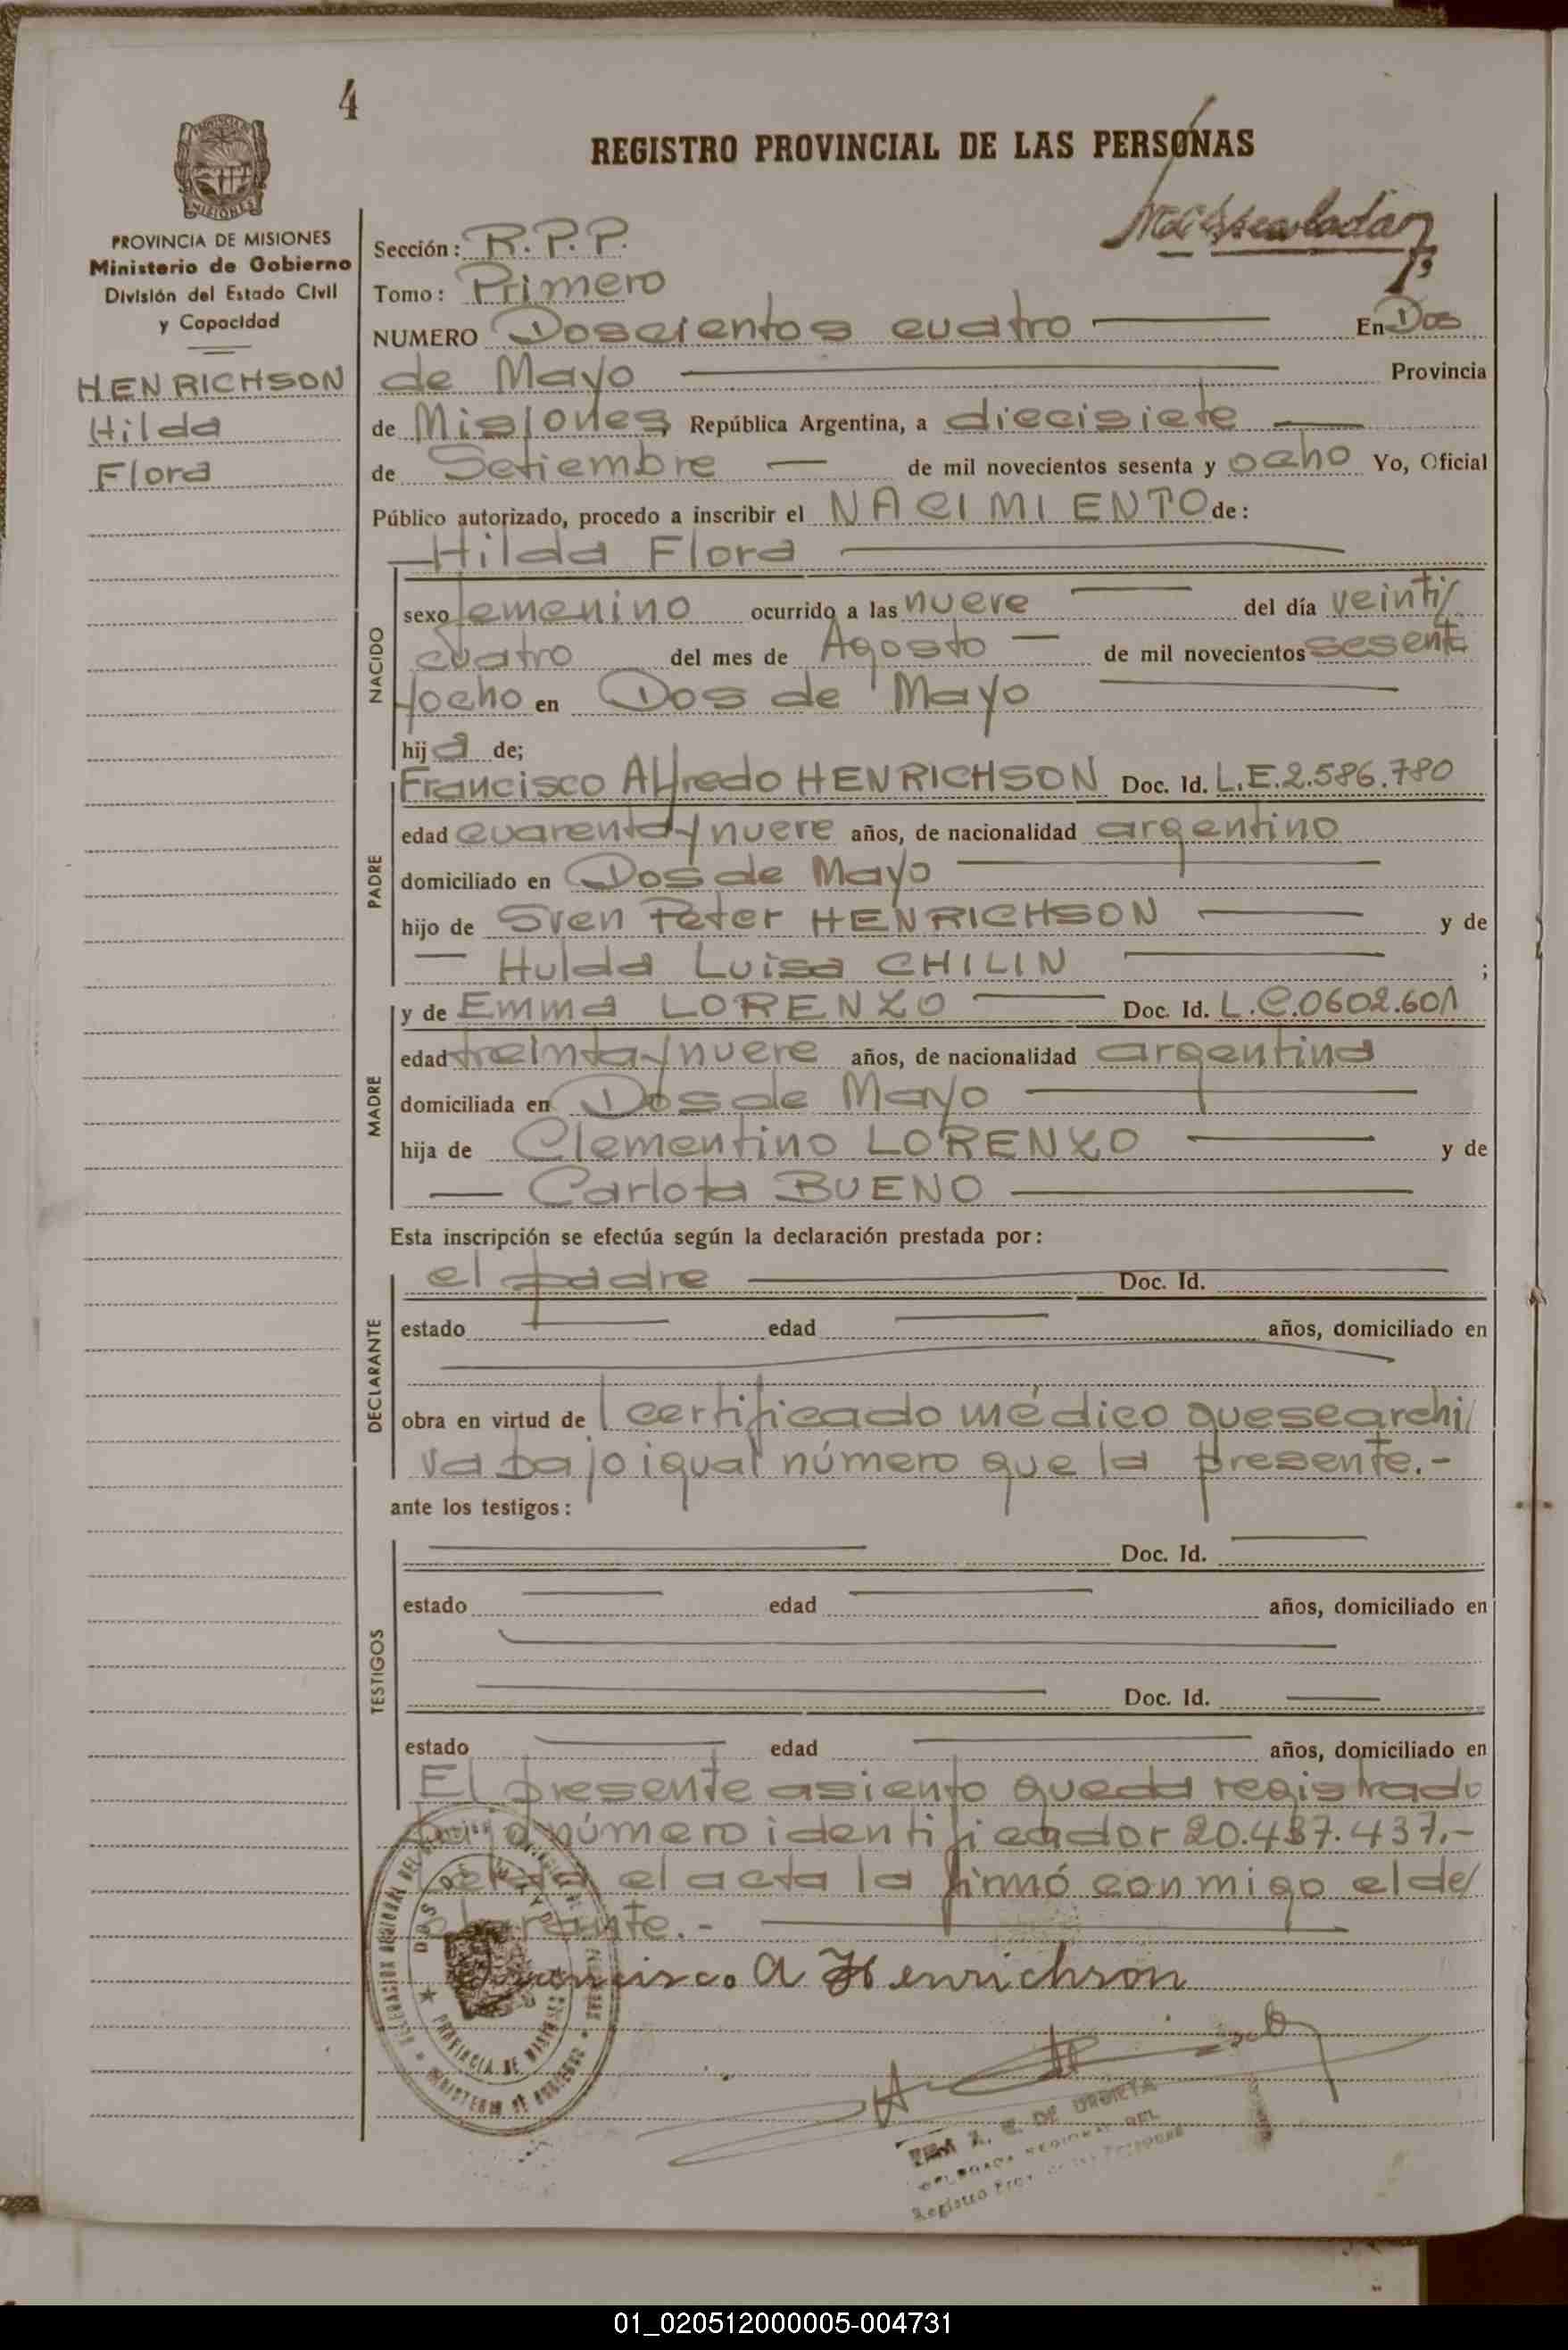 4
REGISTRO PROVINCIAL DE LAS PERSONAS
PROVINCIA DE MISIONES
Ministerio de Gobierno
División del Estado Civil
y Capacidad
HENRICHSON
Hilda
Flora
Sección: R.P.P.
Tomo: Primero
NUMERO Doscientos cuatro En Dos
de Mayo Provincia
de Misiones, República Argentina, a diecisiete
de Setiembre de mil novecientos sesenta y ocho Yo, Oficial
Público autorizado, procedo a inscribir el NACIMIENTO de:
Hilda Flora
NACIDO
sexo femenino ocurrido a las nueve del día veinti/
cuatro del mes de Agosto de mil novecientos sesenta
y ocho en Dos de Mayo
hija de;
PADRE
Francisco Alfredo HENRICHSON Doc. Id. L.E.2.586.780
edad cuarenta y nueve años, de nacionalidad argentino
domiciliado en Dos de Mayo
hijo de Sven Peter HENRICHSON y de
Hulda Luisa CHILIN ;
MADRE
y de Emma LORENZO Doc. Id. L.C.0602.601
edad treinta y nueve años, de nacionalidad argentina
domiciliada en Dos de Mayo
hija de Clementino LORENZO y de
Carlota BUENO
Esta inscripción se efectúa según la declaración prestada por:
DECLARANTE
el padre Doc. Id.
estado edad años, domiciliado en
obra en virtud de l certificado médico que se archi/
va bajo igual número que la presente.-
ante los testigos:
TESTIGOS
Doc. Id.
estado edad años, domiciliado en
Doc. Id.
estado edad años, domiciliado en
El presente asiento queda registrado
bajo número identificador 20.437.437.-
el acta la firmó conmigo el de/
clarante.-
Francisco A Henrichson
DOS DE MAYO
PROVINCIA DE MISIONES
MINISTERIO DE GOBIERNO
DE URBIETA
DELEGADA REGIONAL DEL
Registro
01_020512000005-004731